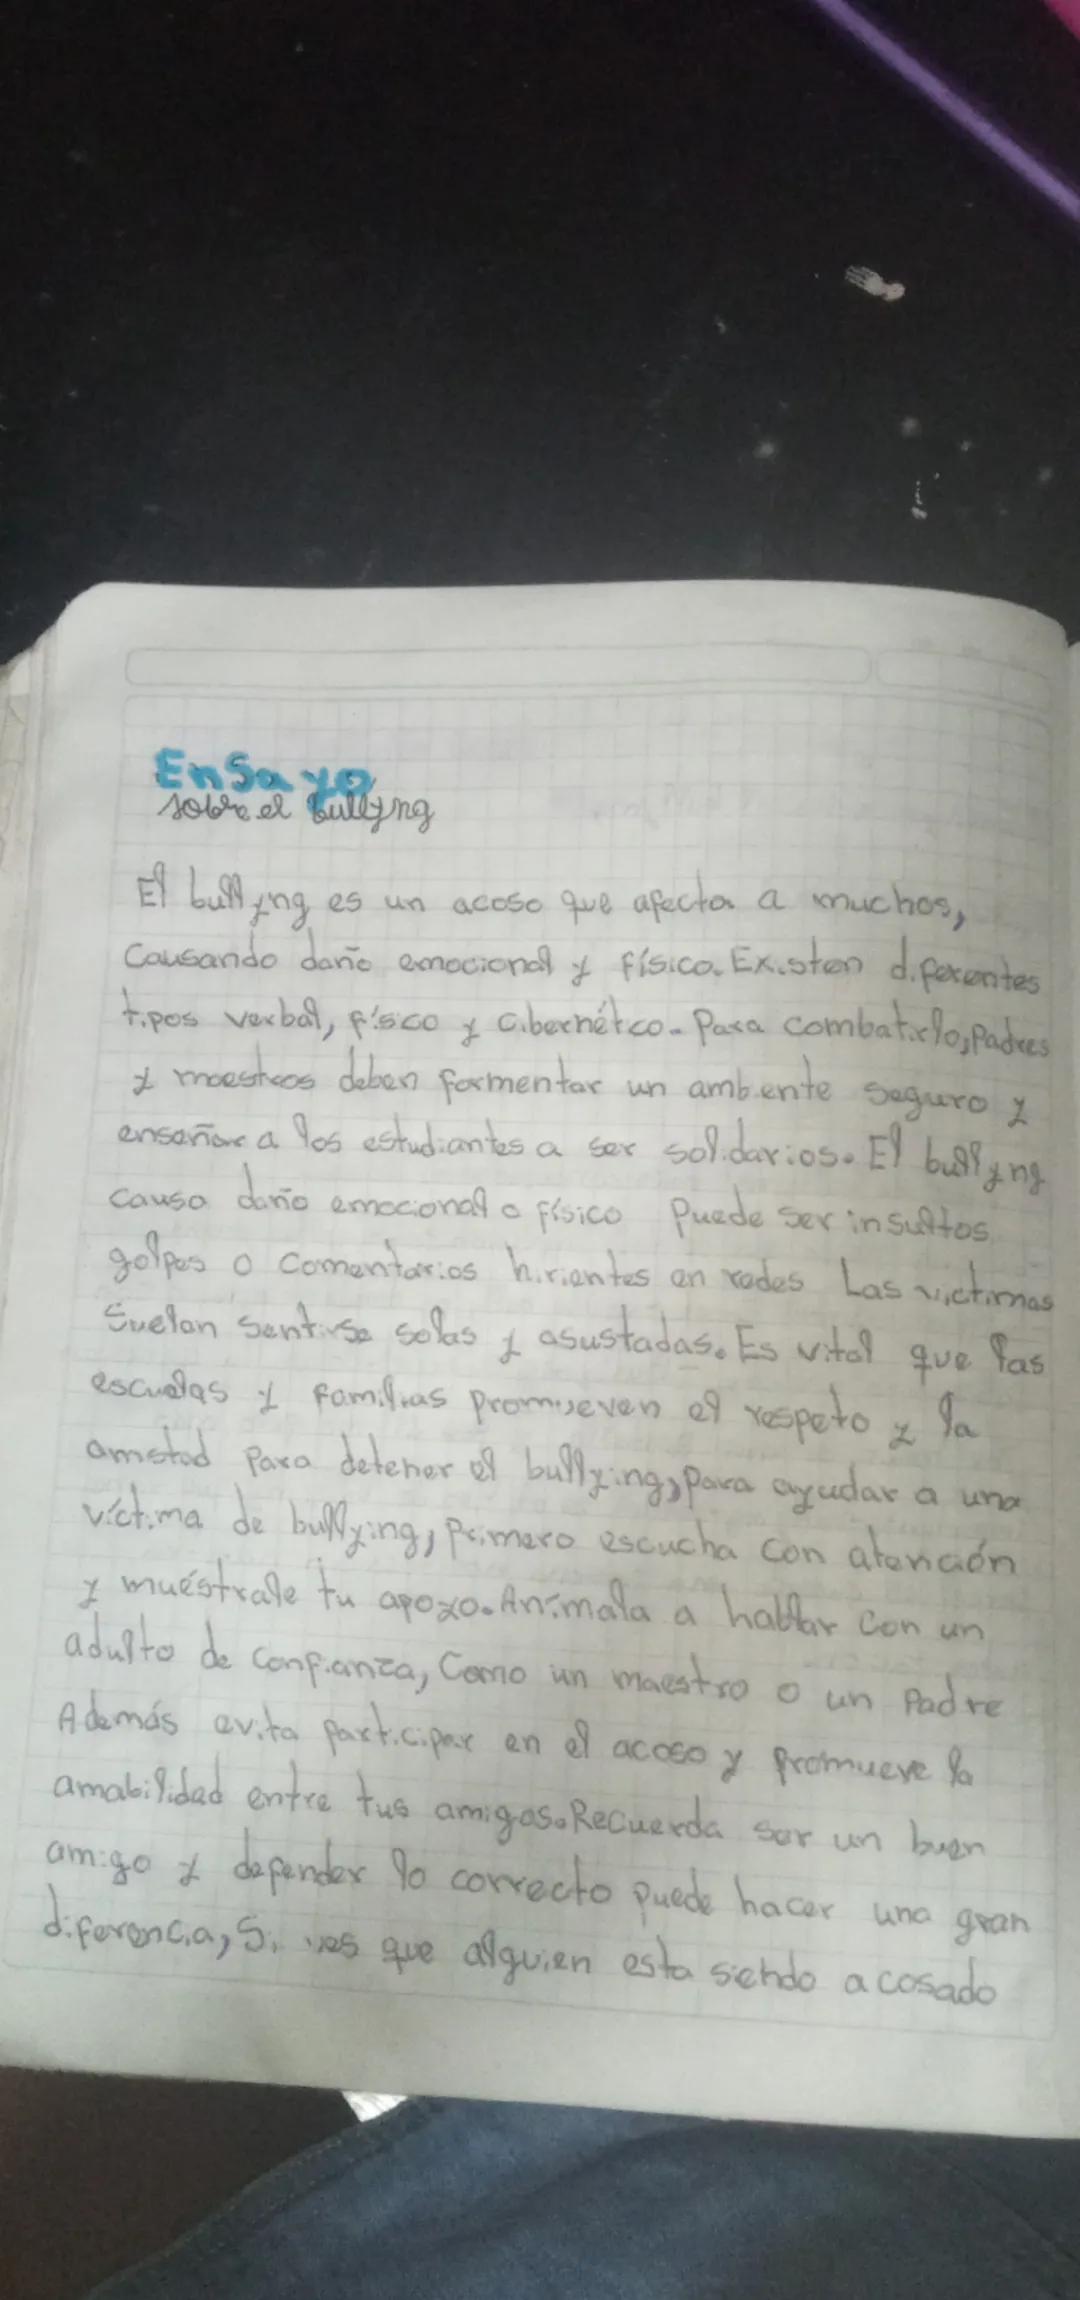 Ensayo
sobre el bullyng
El bullyng es un acoso que afecta a muchos,
Causando daño emocional y físico. Existen diferentes
tipos verbal, físico y cibernético. Para combatirlo, padres
y maestros deben formentar un ambiente seguro y
enseñar a los estudiantes a ser solidarios. El bullyng
causa daño emocional o físico Puede ser insultos
golpes o comentarios hirientes en redes Las victimas
Suelen sentirse solas y asustadas. Es vital que las
escuelas y familias promueven el respeto y la
amistad para detener el bullying, para ayudar a una
víctima de bullying, primero escucha con atención
y muéstrale tu apoyo. Anímala a hablar con un
adulto de confianza, Como un maestro o un Padre
Además evita participar en el acoso y promueve la
amabilidad entre tus amigos. Recuerda ser un buen
amigo y defender lo correcto puede hacer una gran
diferencia, Si ves que alguien esta siendo acosado